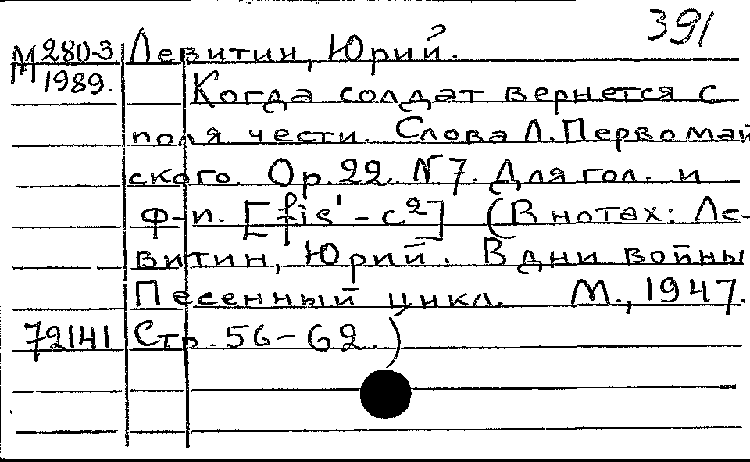 391
М 280-3 Левитин, Юрий.
1989. Когда солдат вернется с
поля чести. Слова Л. Первомай
ского. Ор. 22. N 7. Для гол. и
ф-п. [fis¹ - c²] (В нотах: Ле-
витин, Юрий. В дни войны
Песенный цикл. М., 1947.
72141 Стр. 56-62.)